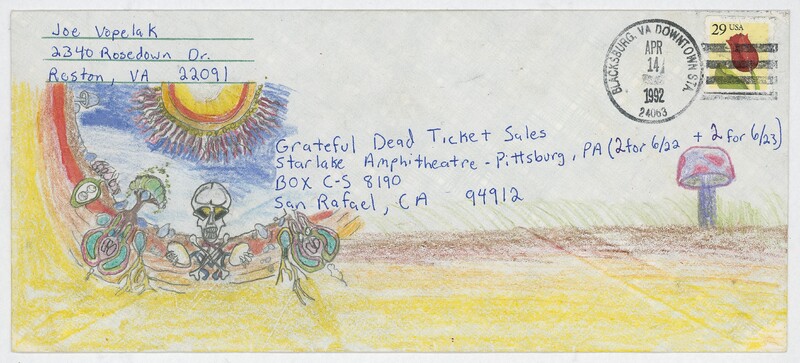 Joe Vopelak
2340 Rosedown Dr.
Reston, VA 22091
BLACKSBURG, VA DOWNTOWN STA.
APR
14
1992
24063
29 USA
Grateful Dead Ticket Sales
Starlake Amphitheatre - Pittsburg, PA (2 for 6/22 + 2 for 6/23)
BOX C-S 8190
San Rafael, CA 94912